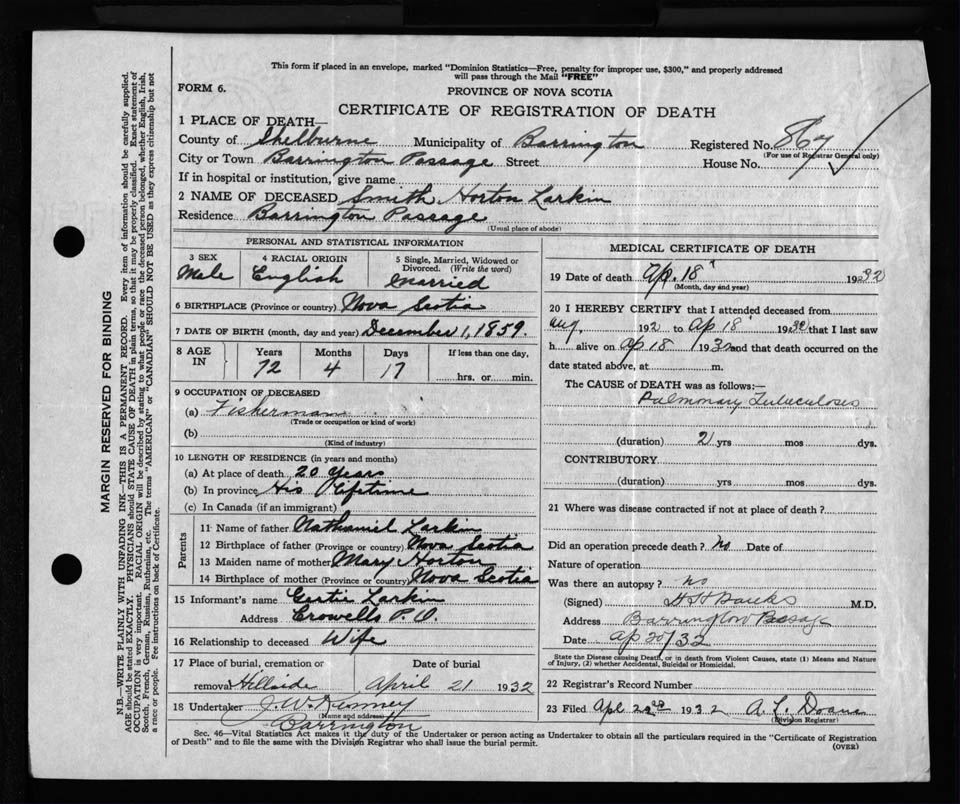 This form if placed in an envelope, marked "Dominion Statistics—Free, penalty for improper use, $300," and properly addressed
will pass through the Mail "FREE"
FORM 6.
PROVINCE OF NOVA SCOTIA
CERTIFICATE OF REGISTRATION OF DEATH
1 PLACE OF DEATH—
County of Shelburne Municipality of Barrington Registered No. 867
(For use of Registrar General only)
City or Town Barrington Passage Street House No.
If in hospital or institution, give name
2 NAME OF DECEASED Smith Horton Larkin
Residence Barrington Passage
(Usual place of abode)
PERSONAL AND STATISTICAL INFORMATION
3 SEX 4 RACIAL ORIGIN 5 Single, Married, Widowed or
Divorced. (Write the word)
Male English Married
6 BIRTHPLACE (Province or country) Nova Scotia
7 DATE OF BIRTH (month, day and year) December 1, 1859.
8 AGE IN Years Months Days If less than one day,
72 4 17 hrs. or min.
9 OCCUPATION OF DECEASED
(a) Fisherman
(Trade or occupation or kind of work)
(b)
(Kind of industry)
10 LENGTH OF RESIDENCE (in years and months)
(a) At place of death 20 Years
(b) In province His Lifetime
(c) In Canada (if an immigrant)
Parents
11 Name of father Nathaniel Larkin
12 Birthplace of father (Province or country) Nova Scotia
13 Maiden name of mother Mary Horton
14 Birthplace of mother (Province or country) Nova Scotia
15 Informant's name Gertie Larkin
Address Crowells P.O.
16 Relationship to deceased Wife
17 Place of burial, cremation or Date of burial
removal Hillside April 21 1932
18 Undertaker J. W. Kenney
(Name and address)
Barrington
MEDICAL CERTIFICATE OF DEATH
19 Date of death Ap. 18 1932
(Month, day and year)
20 I HEREBY CERTIFY that I attended deceased from
Aug, 192 to Ap 18 1932 that I last saw
h alive on Ap 18 1932 and that death occurred on the
date stated above, at m.
The CAUSE of DEATH was as follows:—
Pulmonary Tuluculosis
(duration) 2 yrs mos dys.
CONTRIBUTORY
(duration) yrs mos dys.
21 Where was disease contracted if not at place of death?
Did an operation precede death? No Date of
Nature of operation
Was there an autopsy? no
(Signed) H H Banks M.D.
Address Barrington Passage
Date Ap 20/32
State the Disease causing Death, or in death from Violent Causes, state (1) Means and Nature
of Injury, (2) whether Accidental, Suicidal or Homicidal.
22 Registrar's Record Number
23 Filed Apl 22nd 1932 A. L. Doane
(Division Registrar)
Sec. 46—Vital Statistics Act makes it the duty of the Undertaker or person acting as Undertaker to obtain all the particulars required in the "Certificate of Registration
of Death" and to file the same with the Division Registrar who shall issue the burial permit.
(OVER)
MARGIN RESERVED FOR BINDING
N.B.—WRITE PLAINLY WITH UNFADING INK—THIS IS A PERMANENT RECORD. Every item of information should be carefully supplied.
AGE should be stated EXACTLY. PHYSICIANS should STATE CAUSE OF DEATH in plain terms, so that it may be properly classified. Exact statement of
OCCUPATION is very important. RACIAL ORIGIN will be described by stating to what people or race the deceased person belonged, whether English, Irish,
Scotch, French, German, Russian, Ruthenian, etc. The terms "AMERICAN" or "CANADIAN" SHOULD NOT BE USED as they express citizenship but not
a race or people. See instructions on back of Certificate.